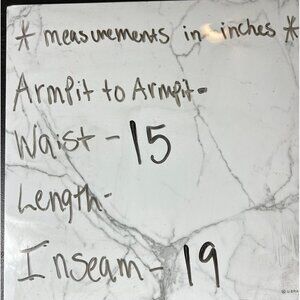 * measurements in inches *
Armpit to Armpit-
Waist - 15
Length-
Inseam - 19